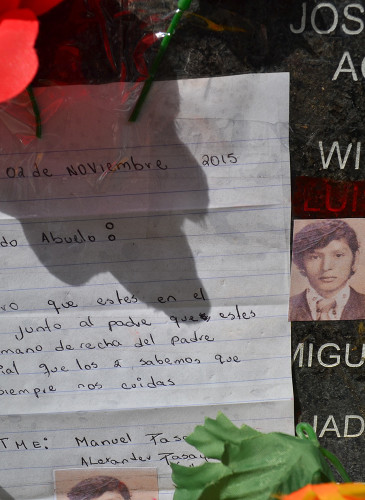 02 de NOViembre 2015
do Abuelo:
ro que estes en el
junto al padre que estes
mano derecha del padre
ial que los 2 sabemos que
siempre nos cuidas
TME: Manuel Tasa
ALexander Tasay
JOS
A
WI
LUI
MIGU
JAD